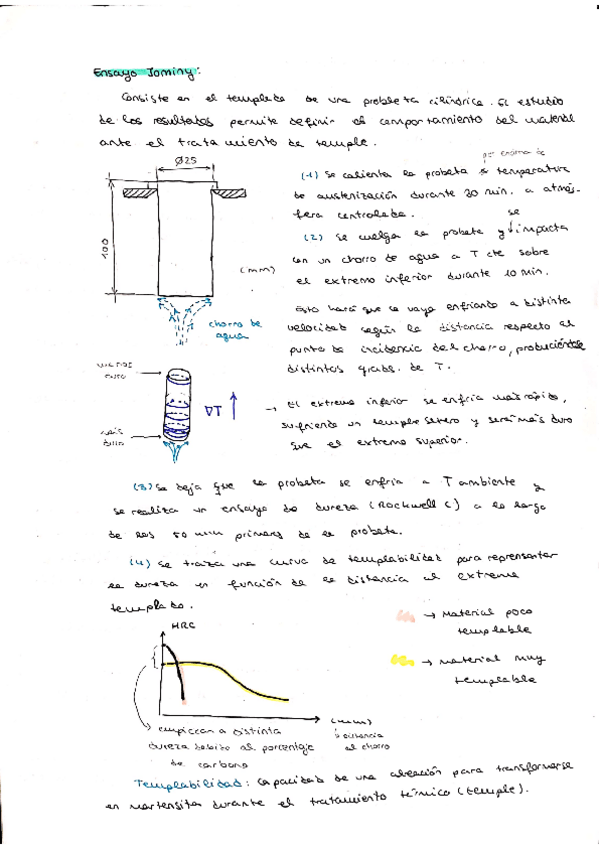 Ensayo Jominy:
Consiste en el templado de una probleta cilíndrica. El estudio
de los resultados permite definir el comportamiento del material
ante el tratamiento de temple.
Ø25
100
(mm)
chorro de
agua
por encima de
(1) Se calienta la probeta a temperatura
de austenización durante 30 min. a atmós-
fera controlada.
se
(2) Se cuelga la probeta y impacta
con un chorro de agua a T cte sobre
el extremo inferior durante 10 min.
Esto hará que se vaya enfriando a distinta
velocidad según la distancia respecto al
punto de incidencia del chorro, produciéndose
distintos grads. de T.
menos
duro
más
duro
∇T
→ El extremo inferior se enfría más rápido,
sufriendo un temple severo y será más duro
que el extremo superior.
(3) Se deja que la probeta se enfría a T ambiente y
se realiza un ensayo de dureza (Rockwell C) a lo largo
de los 50 mm primeros de la probeta.
(4) Se traza una curva de templabilidad para reprensentar
la dureza en función de la distancia al extremo
templado.
HRC
→ Material poco
templable
→ material muy
templable
(mm)
distancia
al chorro
empiezan a distinta
dureza debido al porcentaje
de carbono
Templabilidad: Capacidad de una aleación para transformarse
en martensita durante el tratamiento térmico (temple).